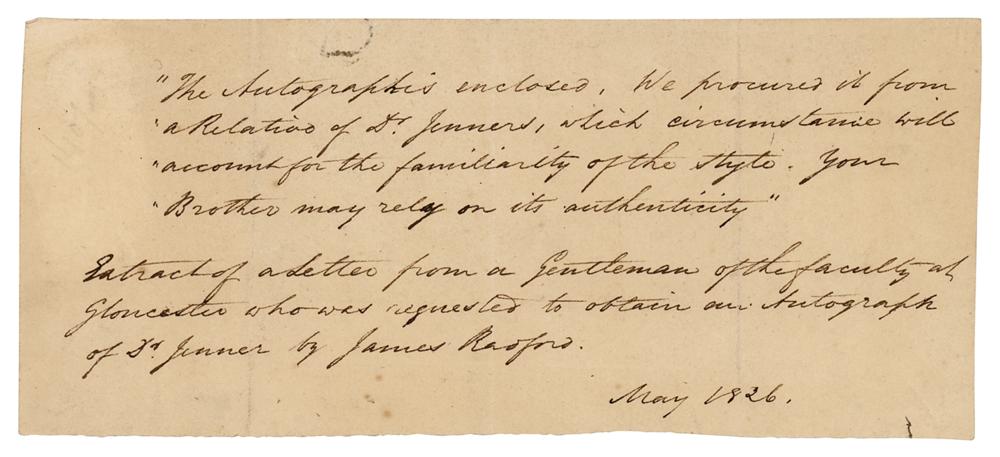 "The Autograph is enclosed. We procured it from
"a Relative of Dr. Jenners, which circumstance will
"account for the familiarity of the style. Your
"Brother may rely on its authenticity"
Extract of a Letter from a Gentleman of the faculty at
Gloucester who was requested to obtain an Autograph
of Dr. Jenner by James Radford.
May 1826.